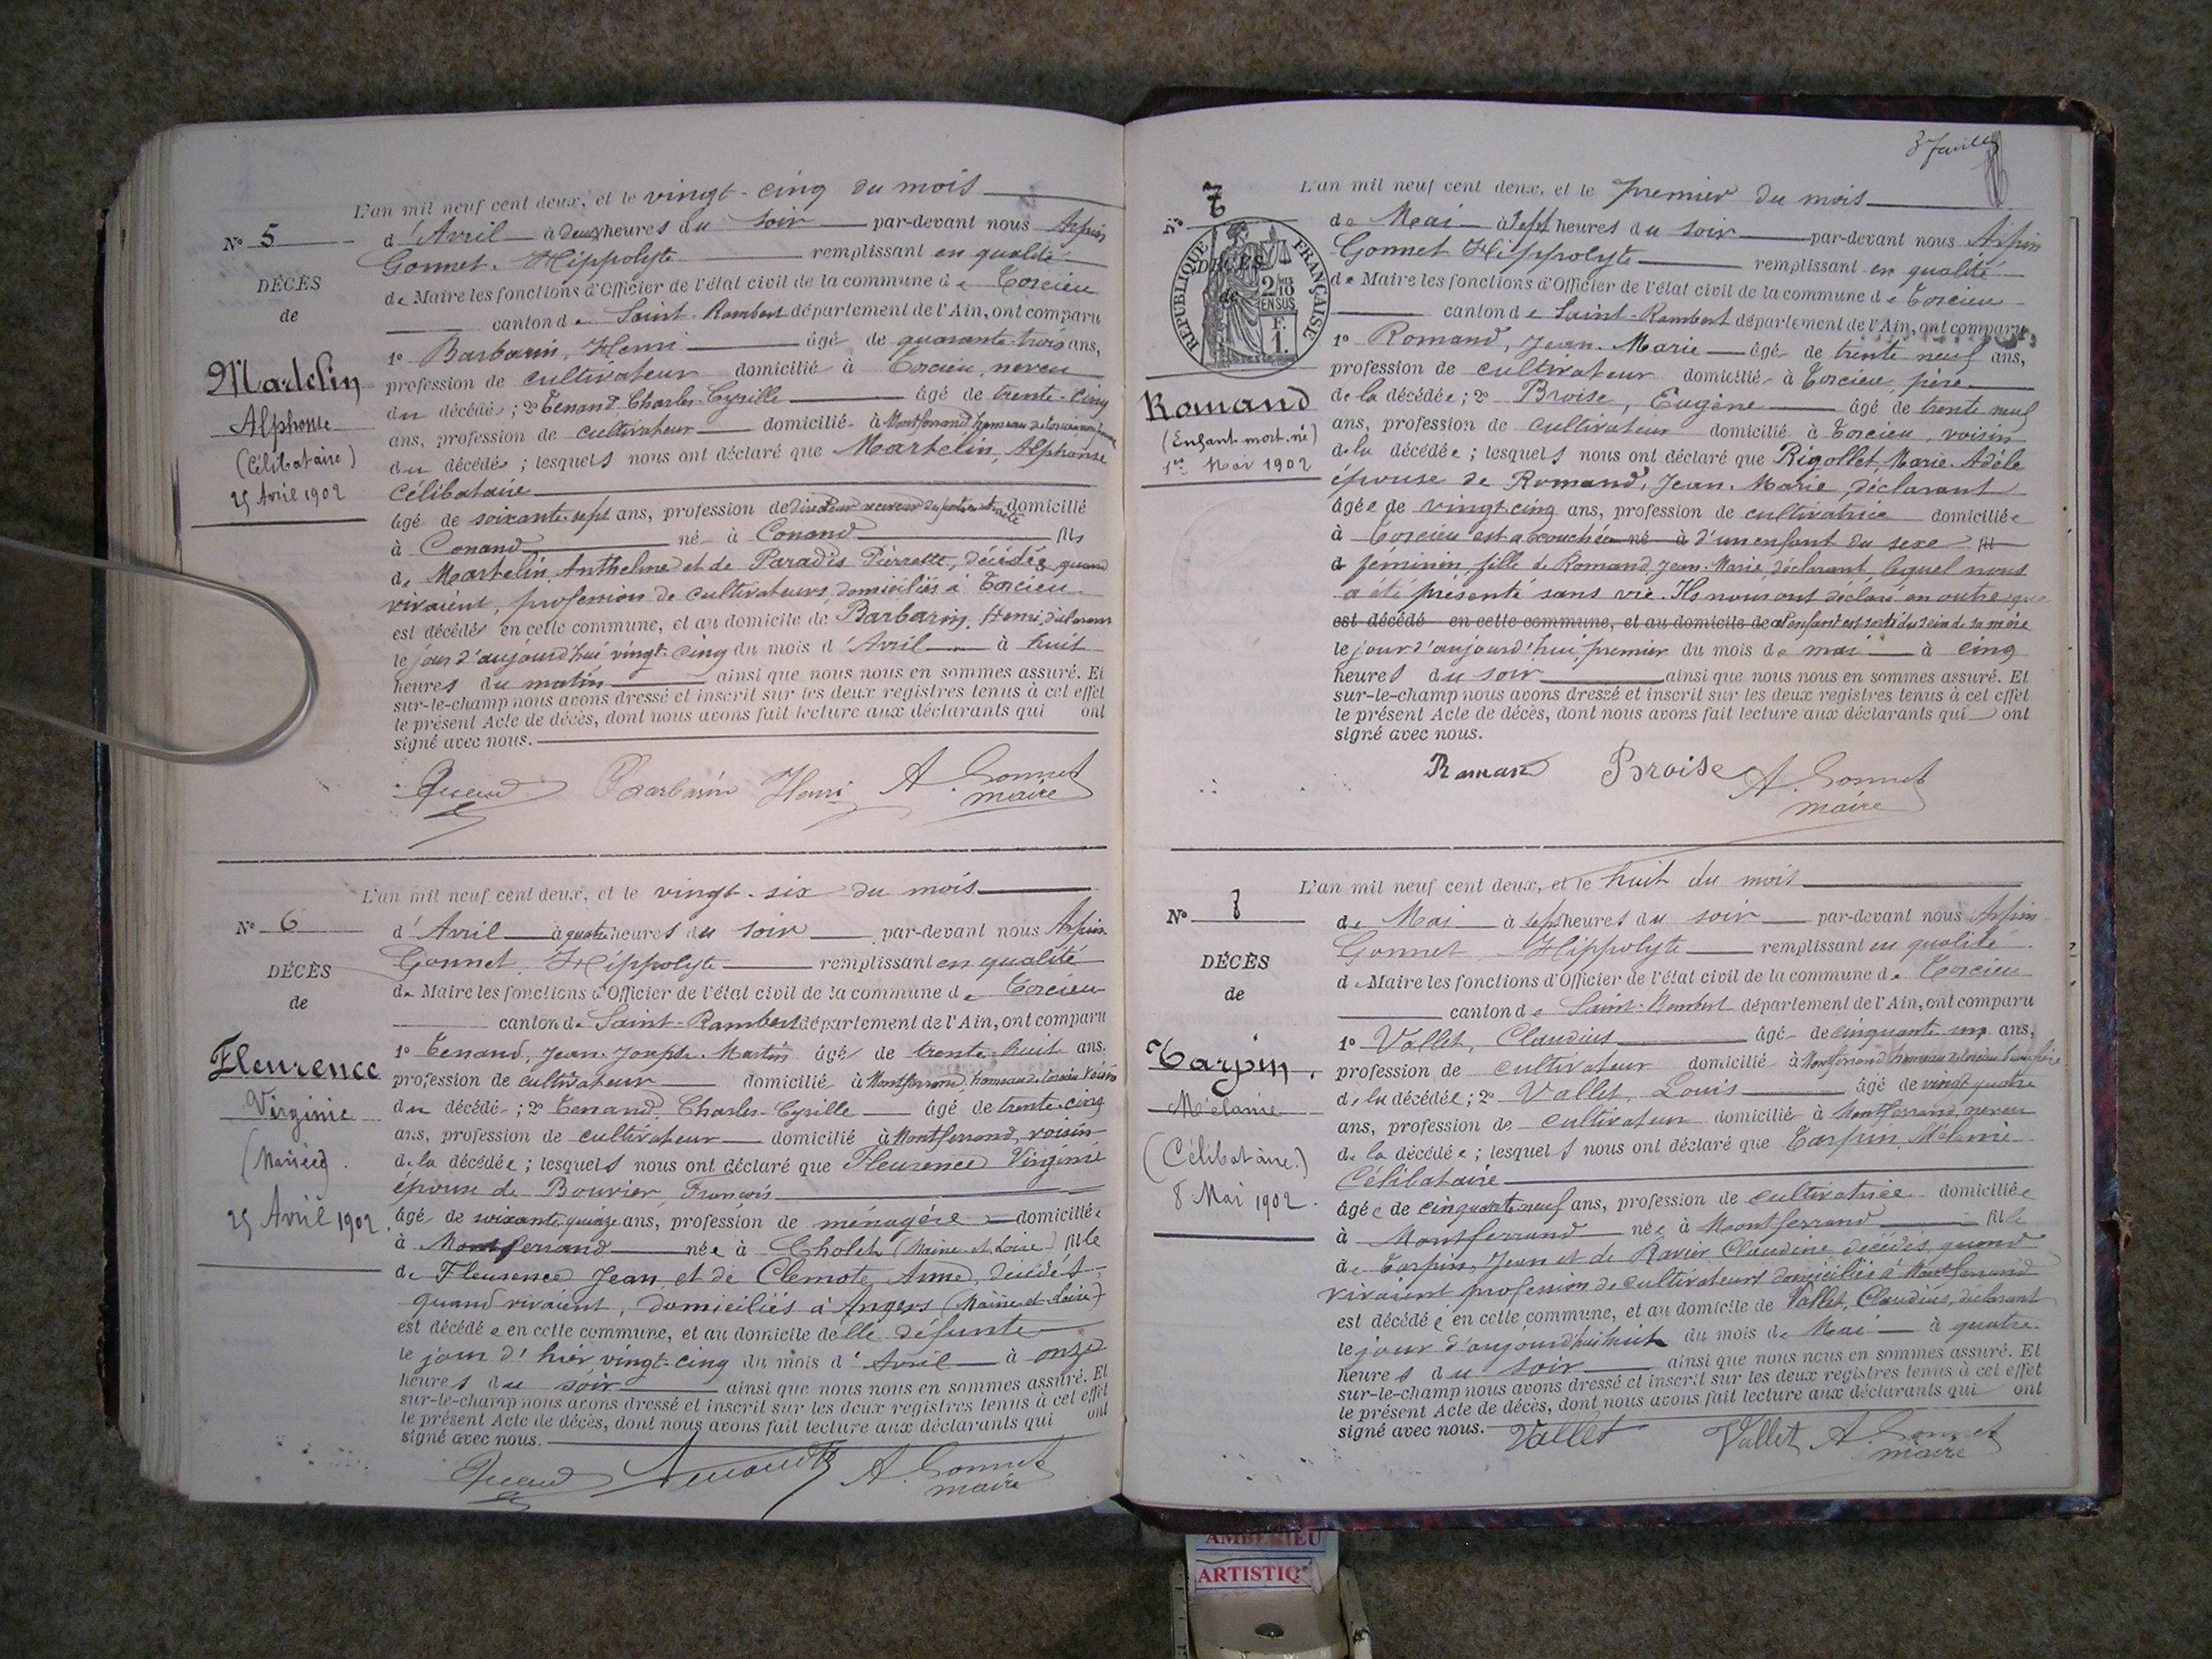 L'an mil neuf cent deux, et le vingt-cinq du mois
N° 5
d'Avril à deux heures du soir par-devant nous Arpin
Gonnet Hippolyte remplissant en qualité
DÉCÈS
de Maire les fonctions d'Officier de l'état civil de la commune de Torcieu
de
canton de Saint-Rambert département de l'Ain, ont comparu
1° Barbarin, Henri âgé de quarante-trois ans,
Martelin
profession de cultivateur domicilié à Torcieu, neveu
du décédé; 2° Tenand Charles-Cyrille âgé de trente-cinq
Alphonse
ans, profession de cultivateur domicilié à Montferrand, hameau de Torcieu
(Célibataire)
du décédé; lesquels nous ont déclaré que Martelin, Alphonse
25 Avril 1902
Célibataire
âgé de soixante-sept ans, profession de directeur receveur des postes en retraite domicilié
à Conand né à Conand fils
de Martelin Anthelme et de Paradis Pierrette, décédés quand
vivaient, profession de cultivateurs domiciliés à Torcieu
est décédé en cette commune, et au domicile de Barbarin, Henri, déclarant
le jour d'aujourd'hui vingt-cinq du mois d'Avril à huit
heures du matin ainsi que nous nous en sommes assuré. Et
sur-le-champ nous avons dressé et inscrit sur les deux registres tenus à cet effet
le présent Acte de décès, dont nous avons fait lecture aux déclarants qui ont
signé avec nous.
Barbarin Henri A. Gonnet
maire
L'an mil neuf cent deux, et le vingt-six du mois
N° 6
d'Avril à quatre heures du soir par-devant nous Arpin
Gonnet Hippolyte remplissant en qualité
DÉCÈS
de Maire les fonctions d'Officier de l'état civil de la commune de Torcieu
de
canton de Saint-Rambert département de l'Ain, ont comparu
1° Tenand, Jean-Joseph-Martin âgé de trente-huit ans.
Fleurence
profession de cultivateur domicilié à Montferrand, hameau de Torcieu voisin
du décédé; 2° Tenand, Charles-Cyrille âgé de trente-cinq
Virginie
ans, profession de cultivateur domicilié à Montferrand, voisin
(Mariée)
de la décédée; lesquels nous ont déclaré que Fleurence Virginie
épouse de Bouvier François
25 Avril 1902
âgé de soixante quinze ans, profession de ménagère domiciliée
à Montferrand née à Cholet (Maine-et-Loire) fille
de Fleurence Jean et de Clemote, Anne, décédés
quand vivaient, domiciliés à Angers (Maine-et-Loire)
est décédée en cette commune, et au domicile de lle défunte
le jour d'hier vingt-cinq du mois d'Avril à onze
heures du soir ainsi que nous nous en sommes assuré. Et
sur-le-champ nous avons dressé et inscrit sur les deux registres tenus à cet effet
le présent Acte de décès, dont nous avons fait lecture aux déclarants qui ont
signé avec nous.
A. Gonnet
maire
L'an mil neuf cent deux, et le premier du mois
N° 7
de Mai à sept heures du soir par-devant nous Arpin
Gonnet Hippolyte remplissant en qualité
RÉPUBLIQUE FRANÇAISE
DÉCÈS
de
2/10 EN SUS
F. 1.
de Maire les fonctions d'Officier de l'état civil de la commune de Torcieu
canton de Saint-Rambert département de l'Ain, ont comparu
1° Romand, Jean-Marie âgé de trente neuf ans,
profession de cultivateur domicilié à Torcieu père
Romand
de la décédée; 2° Broise, Eugène âgé de trente neuf
(Enfant mort-né)
ans, profession de cultivateur domicilié à Torcieu, voisin
1er Mai 1902
de la décédée; lesquels nous ont déclaré que Rigollet, Marie-Adèle
épouse de Romand, Jean-Marie, déclarant
âgée de vingt-cinq ans, profession de cultivatrice domiciliée
à Torcieu est accouchée né à d'un enfant du sexe fil
d féminin, fille de Romand, Jean-Marie, déclarant, lequel nous
a été présenté sans vie. Ils nous ont déclaré en outre que
est décédé en cette commune, et au domicile de l'enfant est sorti du sein de sa mère
le jour d'aujourd'hui, premier du mois de mai à cinq
heures du soir ainsi que nous nous en sommes assuré. Et
sur-le-champ nous avons dressé et inscrit sur les deux registres tenus à cet effet
le présent Acte de décès, dont nous avons fait lecture aux déclarants qui ont
signé avec nous.
Romand Broise A. Gonnet
maire
L'an mil neuf cent deux, et le huit du mois
N° 8
de Mai à sept heures du soir par-devant nous Arpin
Gonnet Hippolyte remplissant en qualité
DÉCÈS
de Maire les fonctions d'Officier de l'état civil de la commune de Torcieu
de
canton de Saint-Rambert département de l'Ain, ont comparu
1° Vallet, Claudius âgé de cinquante un ans,
Tarpin
profession de cultivateur domicilié à Montferrand, hameau de Torcieu beau-frère
Mélanie
de la décédée; 2° Vallet, Louis âgé de vingt-quatre
ans, profession de cultivateur domicilié à Montferrand, neveu
(Célibataire)
de la décédée; lesquels nous ont déclaré que Tarpin, Mélanie
Célibataire
8 Mai 1902
âgée de cinquante neuf ans, profession de cultivatrice domiciliée
à Montferrand née à Montferrand fille
de Tarpin, Jean et de Ravier Claudine décédés quand
vivaient profession de cultivateurs domiciliés à Montferrand
est décédée en cette commune, et au domicile de Vallet, Claudius, déclarant
le jour d'aujourd'hui huit du mois de Mai à quatre
heures du soir ainsi que nous nous en sommes assuré. Et
sur-le-champ nous avons dressé et inscrit sur les deux registres tenus à cet effet
le présent Acte de décès, dont nous avons fait lecture aux déclarants qui ont
signé avec nous. Vallet Vallet A. Gonnet
maire
AMBERIEU
ARTISTIQ